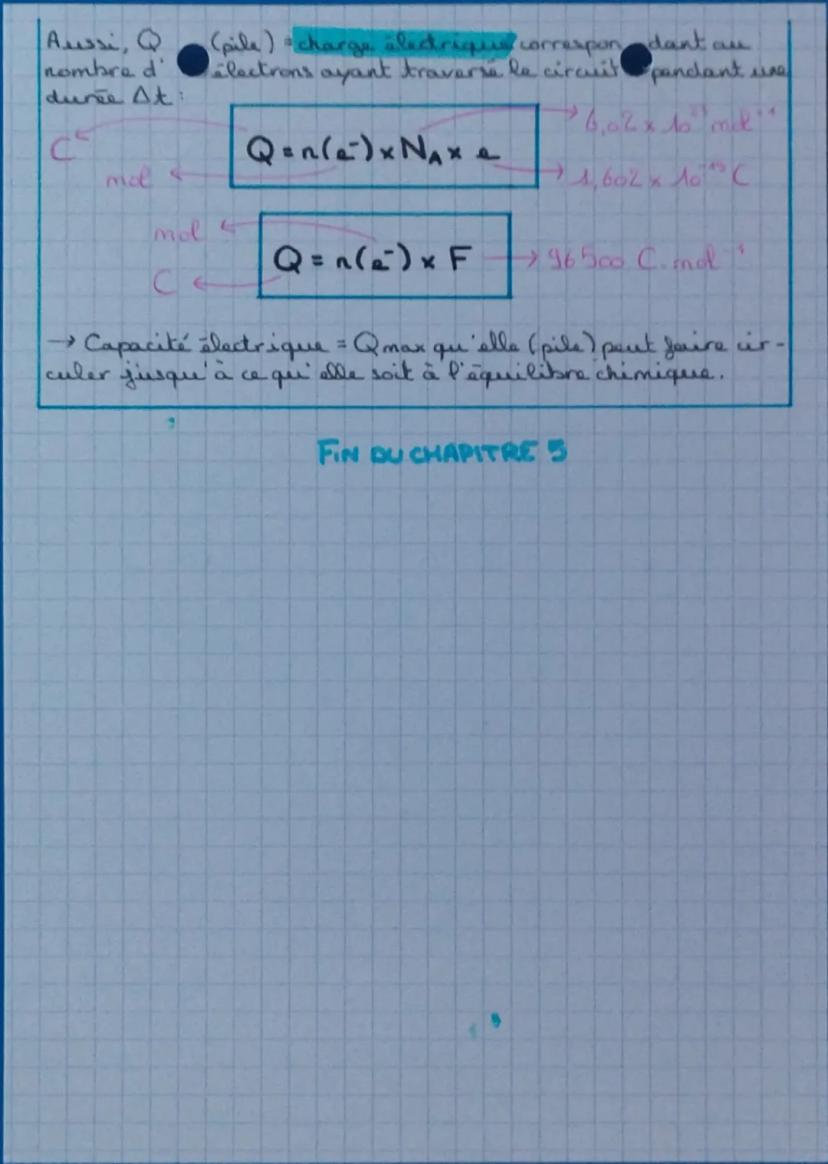 Aussi, Q (pile) = charge électrique correspondant au
nombre d'électrons ayant traversé le circuit pendant une
durée Δt :
C
mol
Q = n(e⁻) × N_A × e
6,02 × 10²³ mol⁻¹
1,602 × 10⁻¹⁹ C
mol
C
Q = n(e⁻) × F
96500 C.mol⁻¹
→ Capacité électrique = Qmax qu'elle (pile) peut faire cir-
culer jusqu'à ce qu'elle soit à l'équilibre chimique.
FIN DU CHAPITRE 5